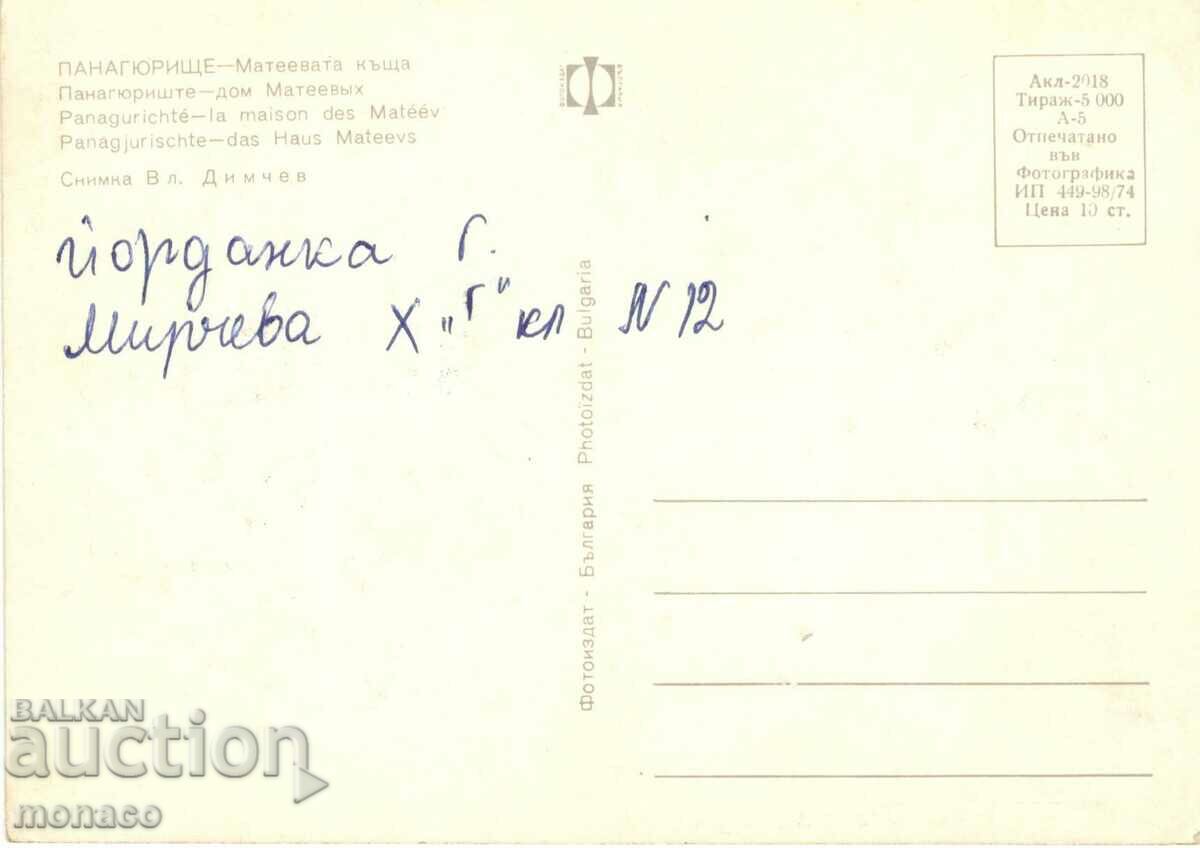 ПАНАГЮРИЩЕ—Матеевата къща
Панагюриште—дом Матеевых
Panagurichté—la maison des Matéév
Panagjurischte—das Haus Mateevs
Снимка Вл. Димчев
Акл-2018
Тираж-5 000
А-5
Отпечатано
във
Фотографика
ИП 449-98/74
Цена 10 ст.
Йорданка Г.
Мирчева X „Г" кл N 12
Фотоиздат - България Photoizdat - Bulgaria
BALKAN
auction
monaco